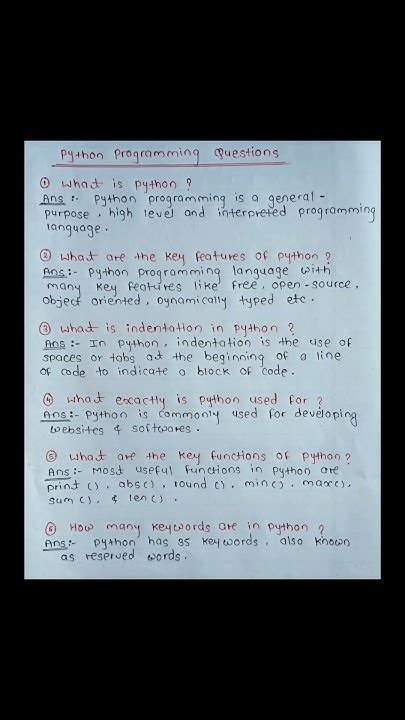 Python Programming Questions
① What is python ?
Ans :- Python programming is a general-
purpose, high level and interpreted programming
language.
② What are the key features of python ?
Ans:- Python programming language with
many key features like free, open-source,
object oriented, Dynamically typed etc.
③ What is indentation in python ?
Ans :- In Python, indentation is the use of
spaces or tabs at the beginning of a line
of code to indicate a block of code.
④ What exactly is python used for ?
Ans:- Python is commonly used for developing
websites & softwares.
⑤ What are the key functions of python ?
Ans :- Most useful functions in python are
print (), abs(), round (), min(), max(),
sum (), & len() .
⑥ How many keywords are in python ?
Ans:- Python has 35 keywords, also known
as reserved words.